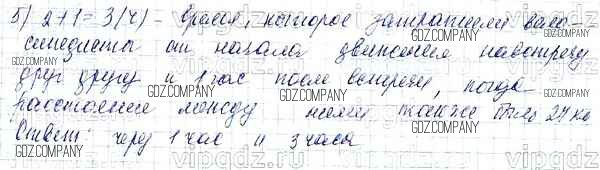 5) 2+1=3(ч) - время, которое затратили вело-
сипедисты от начала движения навстречу
друг другу и 1 час после встречи, когда
расстояние между ними также было 27 км
Ответ: через 1 час и 3 часа
GDZ.COMPANY
vipgdz.ru